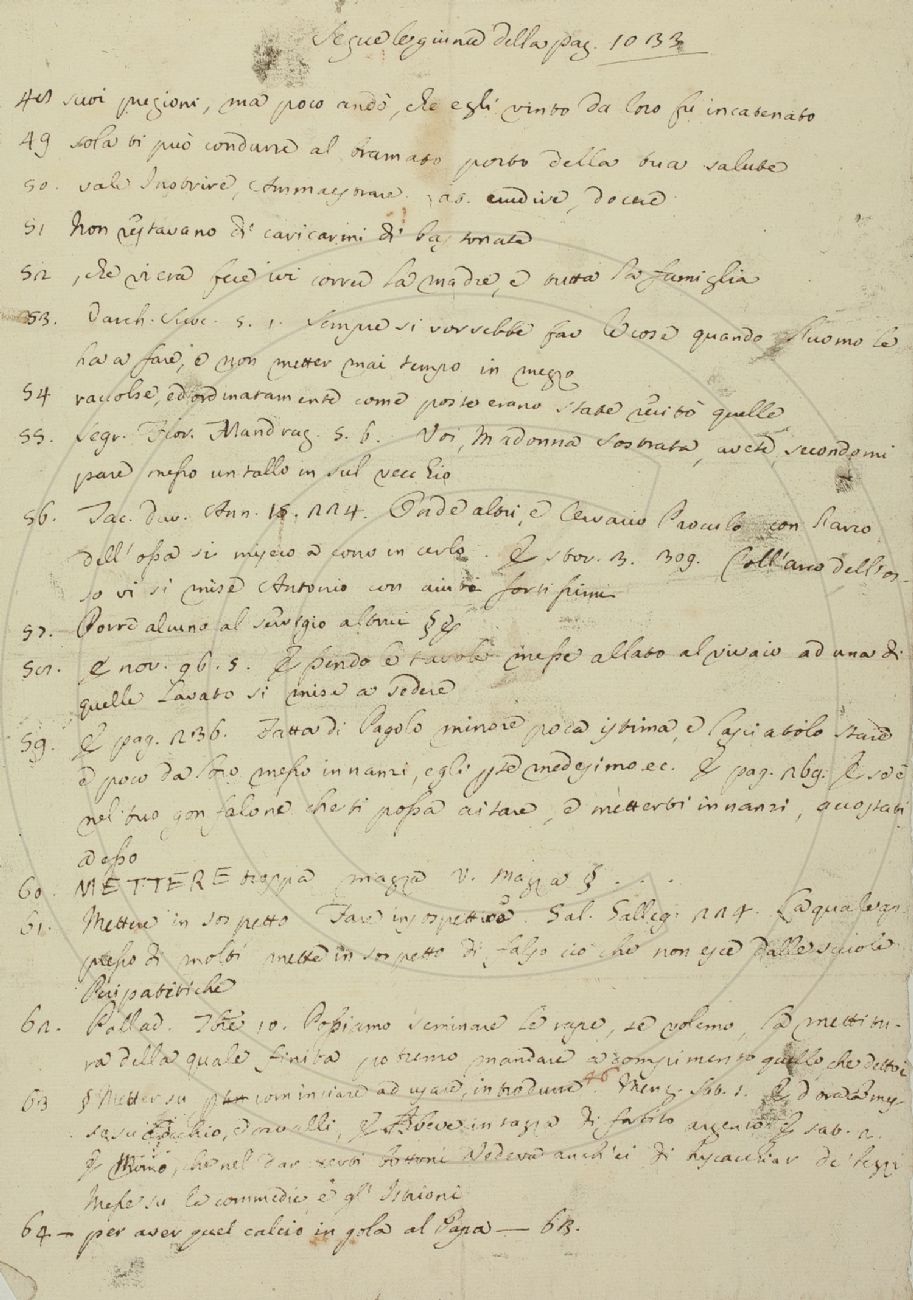 Segue le giunte della pag. 1033
48 suoi pregioni, ma poco andò, che egli vinto da loro fu incatenato
49 sola ti può condurre al bramato porto della tua salute
50. vale Instruire, Ammaestrare. Lat. erudire, docere
51 Non restavano di caricarmi di bastonate
52 , che vi era fece ivi correr la madre, e tutta la famiglia
53. Varch. Suoc. 5. 1. Sempre si vorrebbe far le cose quando l'uomo le
ha a fare, e non metter mai tempo in mezzo
54 raccolse, ed ordinatamente come poste erano state recitò quelle
55. Segr. Fior. Mandrag. 5. 6. Voi, Madonna Sostrata, avete, secondo mi
pare messo un tallo in sul vecchio
56. Tac. Dav. Ann. 15. 224. Onde altri, e Cervario Proculo con l'arco
dell' ossa si misero a corlo. E stor. 3. 309. Coll'arco dell'os-
so vi si mise Antonio con aiuti fortissimi
57. Porre alcuno al servigio altrui §
58. E nov. 96. 5. Essendo le tavole messe allato al vivaio ad una di
quelle lavato si mise a sedere
59. E pag. 236. Fatta di Pagolo minore poca istima, e lasciatolo stare
e poco da loro messo innanzi, egli stesso medesimo ec. E pag. 269. E se è
nel tuo gonfalone chi ti possa aitare, e metterti innanzi, accostati
a esso
60. METTERE troppa mazza V. Mazza § . . .
61. Mettere in sospetto Fare insospettire. Gal. Galleg. 224. La qual cosa ap-
presso di molti mette in sospetto di falso ciò che non esce dalle scuole
Peripatetiche
62. Pallad. Ttbre 10. Possiamo seminare le rape, se volemo, la mettitu-
ra della quale finita potremo mandare a compimento quello, che detto è
63 § Metter su per cominciare ad usare, introdurre 46 Menz. sat. 1. E d'orata mes-
sa su cocchio, e cavalli, E bevve in tazza di forbito argento E sat. 2.
E Mimo, che nel dar
Messe su le commedie, e gl' Istrioni
64 — per aver quel calcio in gola al Papa — 63.